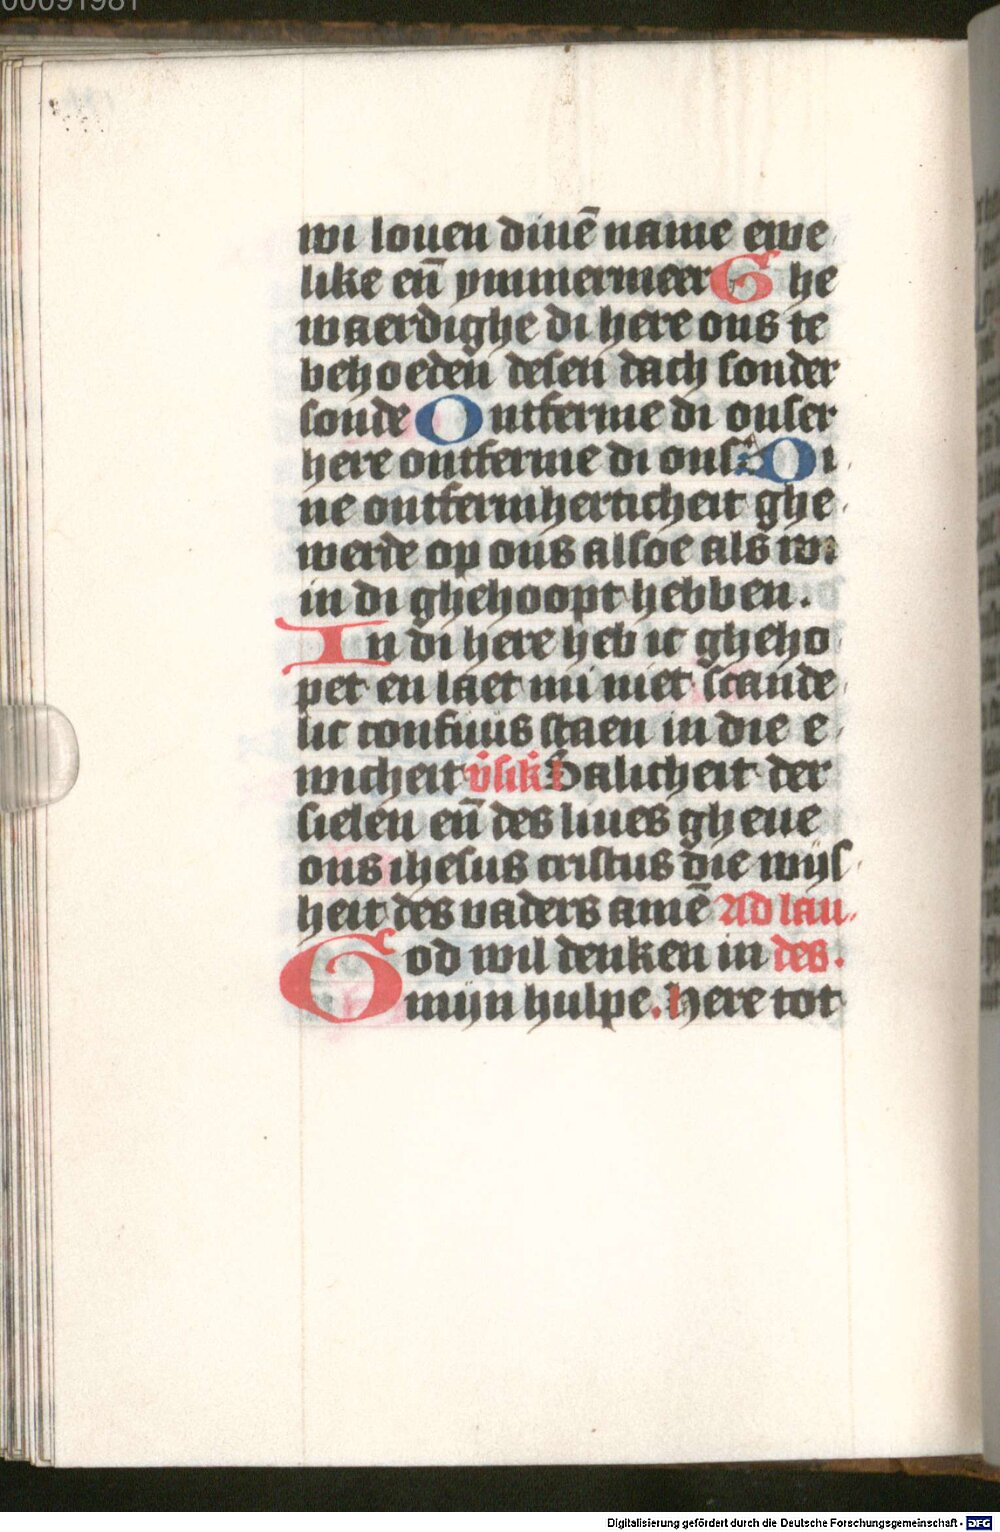 00091981
wi louen dinē name ewe
like en̄ ymmermeer Ghe
waerdighe di here ons te
behoeden desen dach sonder
sonde Ontferme di onser
here ontferme di onser Di
ne ontfermherticheit ghe
werde op ons alsoe als wi
in di ghehoopt hebben.
In di here heb ic gheho
pet en laet mi niet scande
lic confuus staen in die e
wicheit Salicheit der
sielen en̄ des liues gheue
ons ihesus cristus die wijs
heit des vaders amē Ad lau
God wil denken in des.
mijn hulpe. Here tot
Digitalisierung gefördert durch die Deutsche Forschungsgemeinschaft - DFG